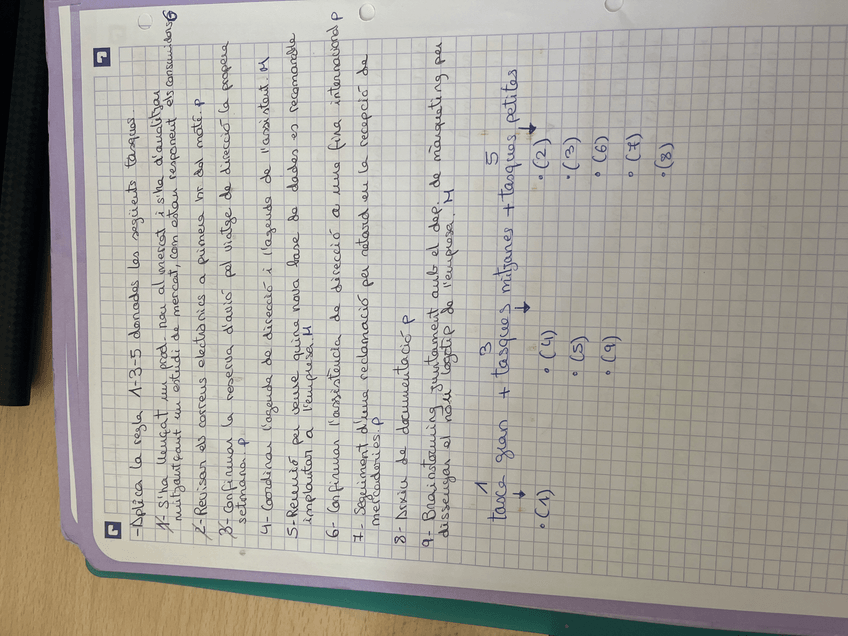 -Aplica la regla 1-3-5 donades les següents tasques.
1- S'ha llençat un prod. nou al mercat i s'ha d'analitzar
mitjançant un estudi de mercat, com estan responent els consumidors G
2- Revisar els correus electrònics a primera hr del matí. P
3- Confirmar la reserva d'avió pel viatge de direcció la propera
setmana. P
4- Coordinar l'agenda de direcció i l'agenda de l'assistent. M
5- Reunió per veure quina nova base de dades es recomanable
implantar a l'empresa. M
6- Confirmar l'assistència de direcció a una fira internacional P
7- Seguiment d'una reclamació per retard en la recepció de
mercaderies. P
8- Arxiu de documentació P
9- Brainstorming juntament amb el dep. de màrqueting per
dissenyar el nou logotip de l'empresa. M
1 3 5
tasca gran + tasques mitjanes + tasques petites
↓ ↓ ↓
• (1) • (4) • (2)
• (5) • (3)
• (9) • (6)
• (7)
• (8)